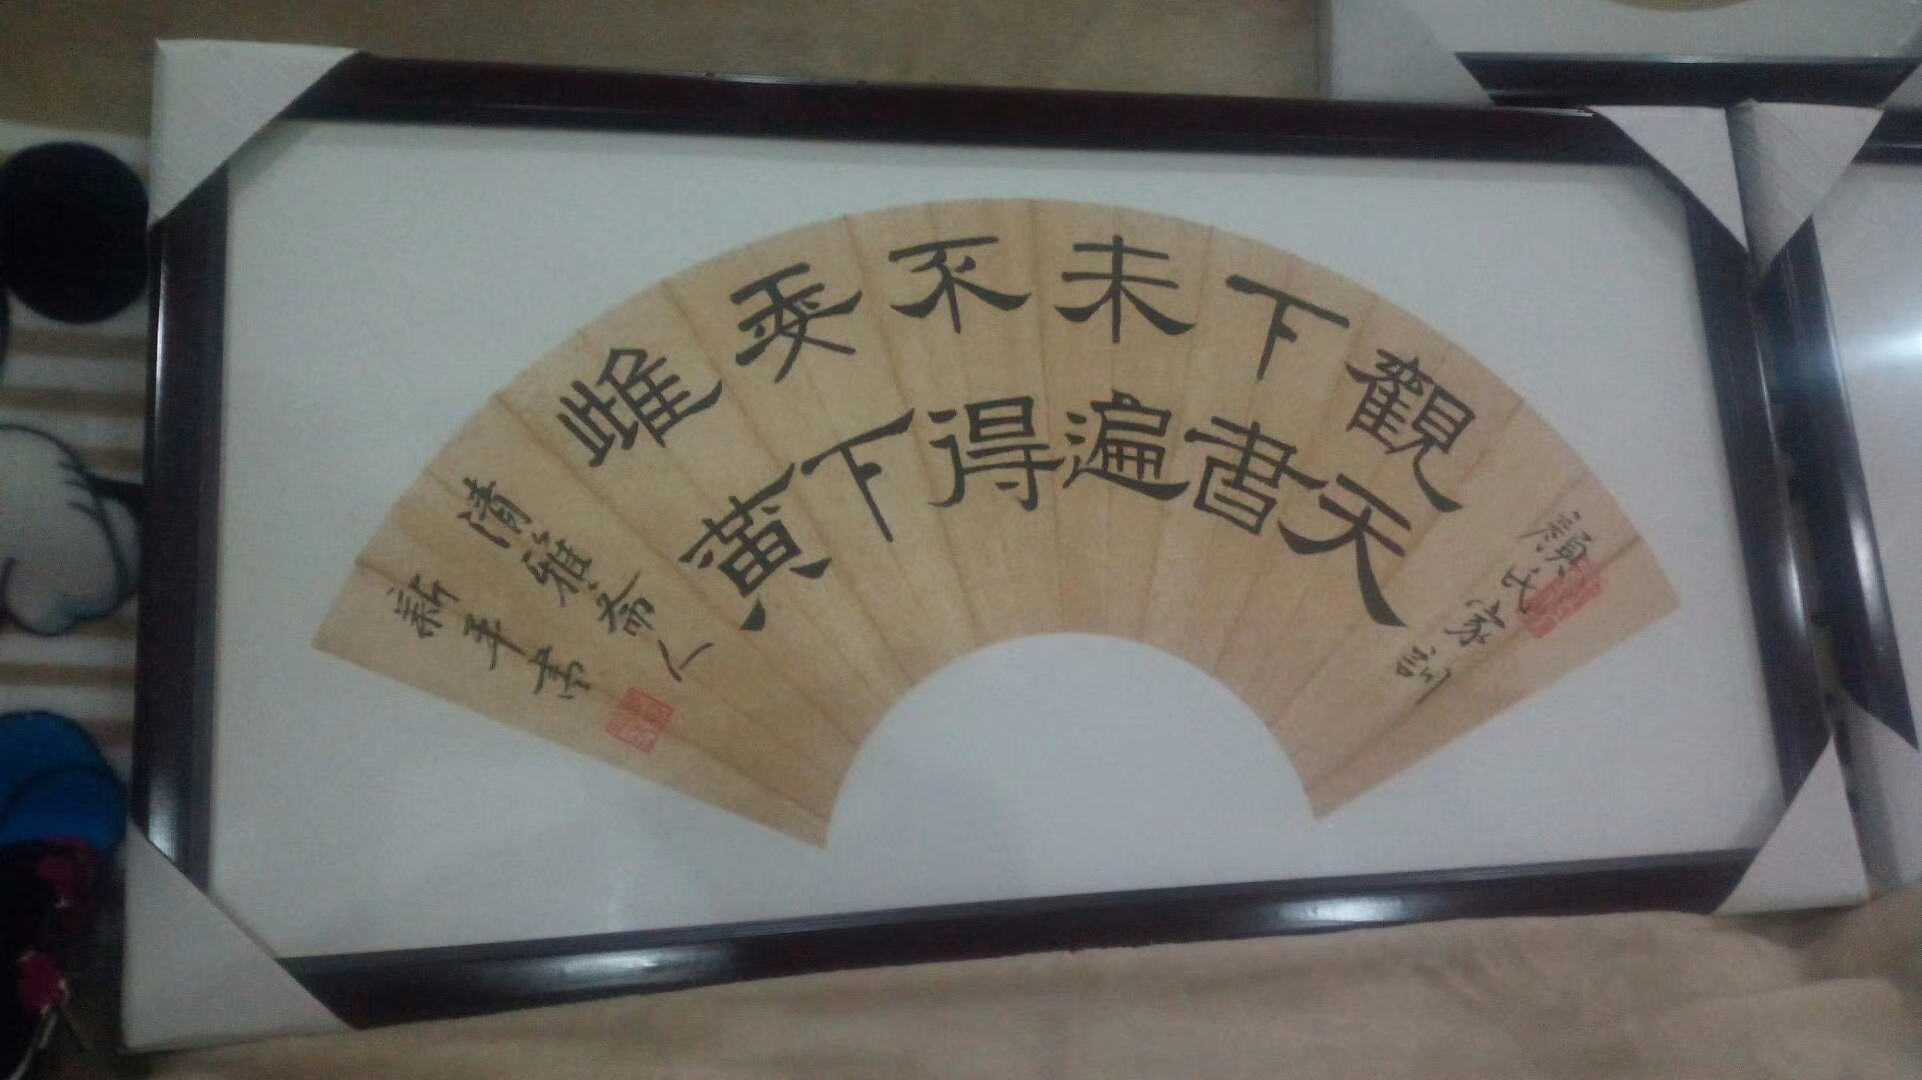 觀天
下書
未遍
不得
妄下
雌黃
录顏氏家訓
清雅斎人
新平書